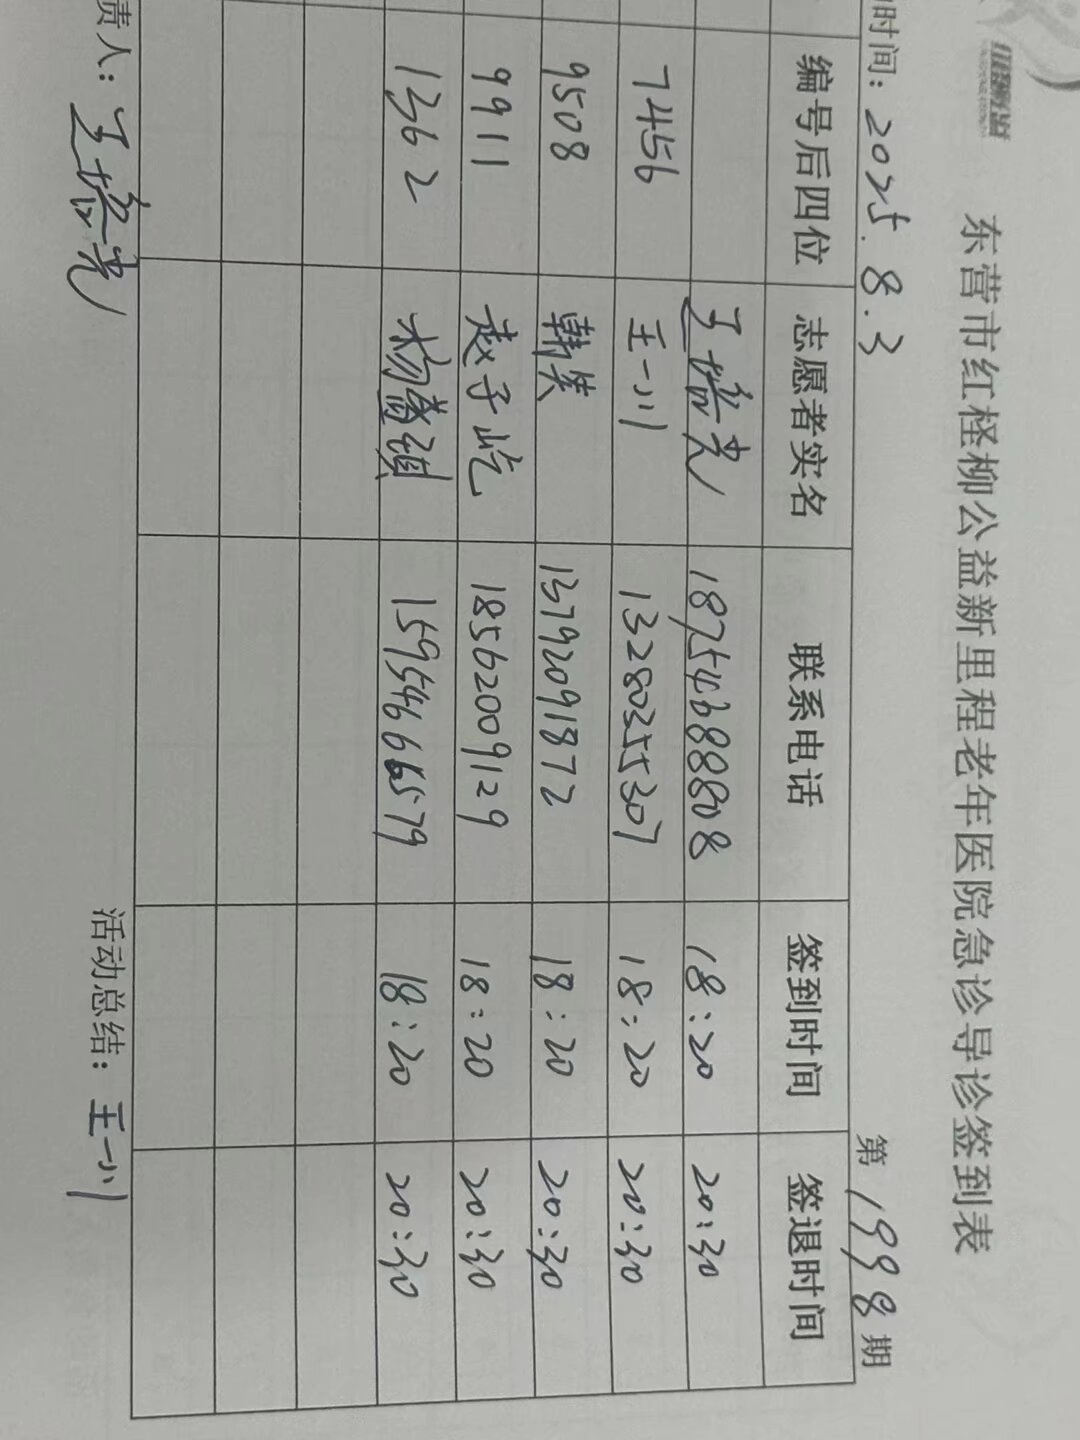 东营市红柽柳公益新里程老年医院急诊导诊签到表
时间：2025.8.3 第1998期
编号后四位 志愿者实名 联系电话 签到时间 签退时间
王培光 18754688808 18:20 20:30
7456 王一川 13280355307 18:20 20:30
9508 韩笑 13792091872 18:20 20:30
9911 赵子屹 18562009129 18:20 20:30
1362 杨蕾祺 15954666579 18:20 20:30
责人：王培光 活动总结：王一川